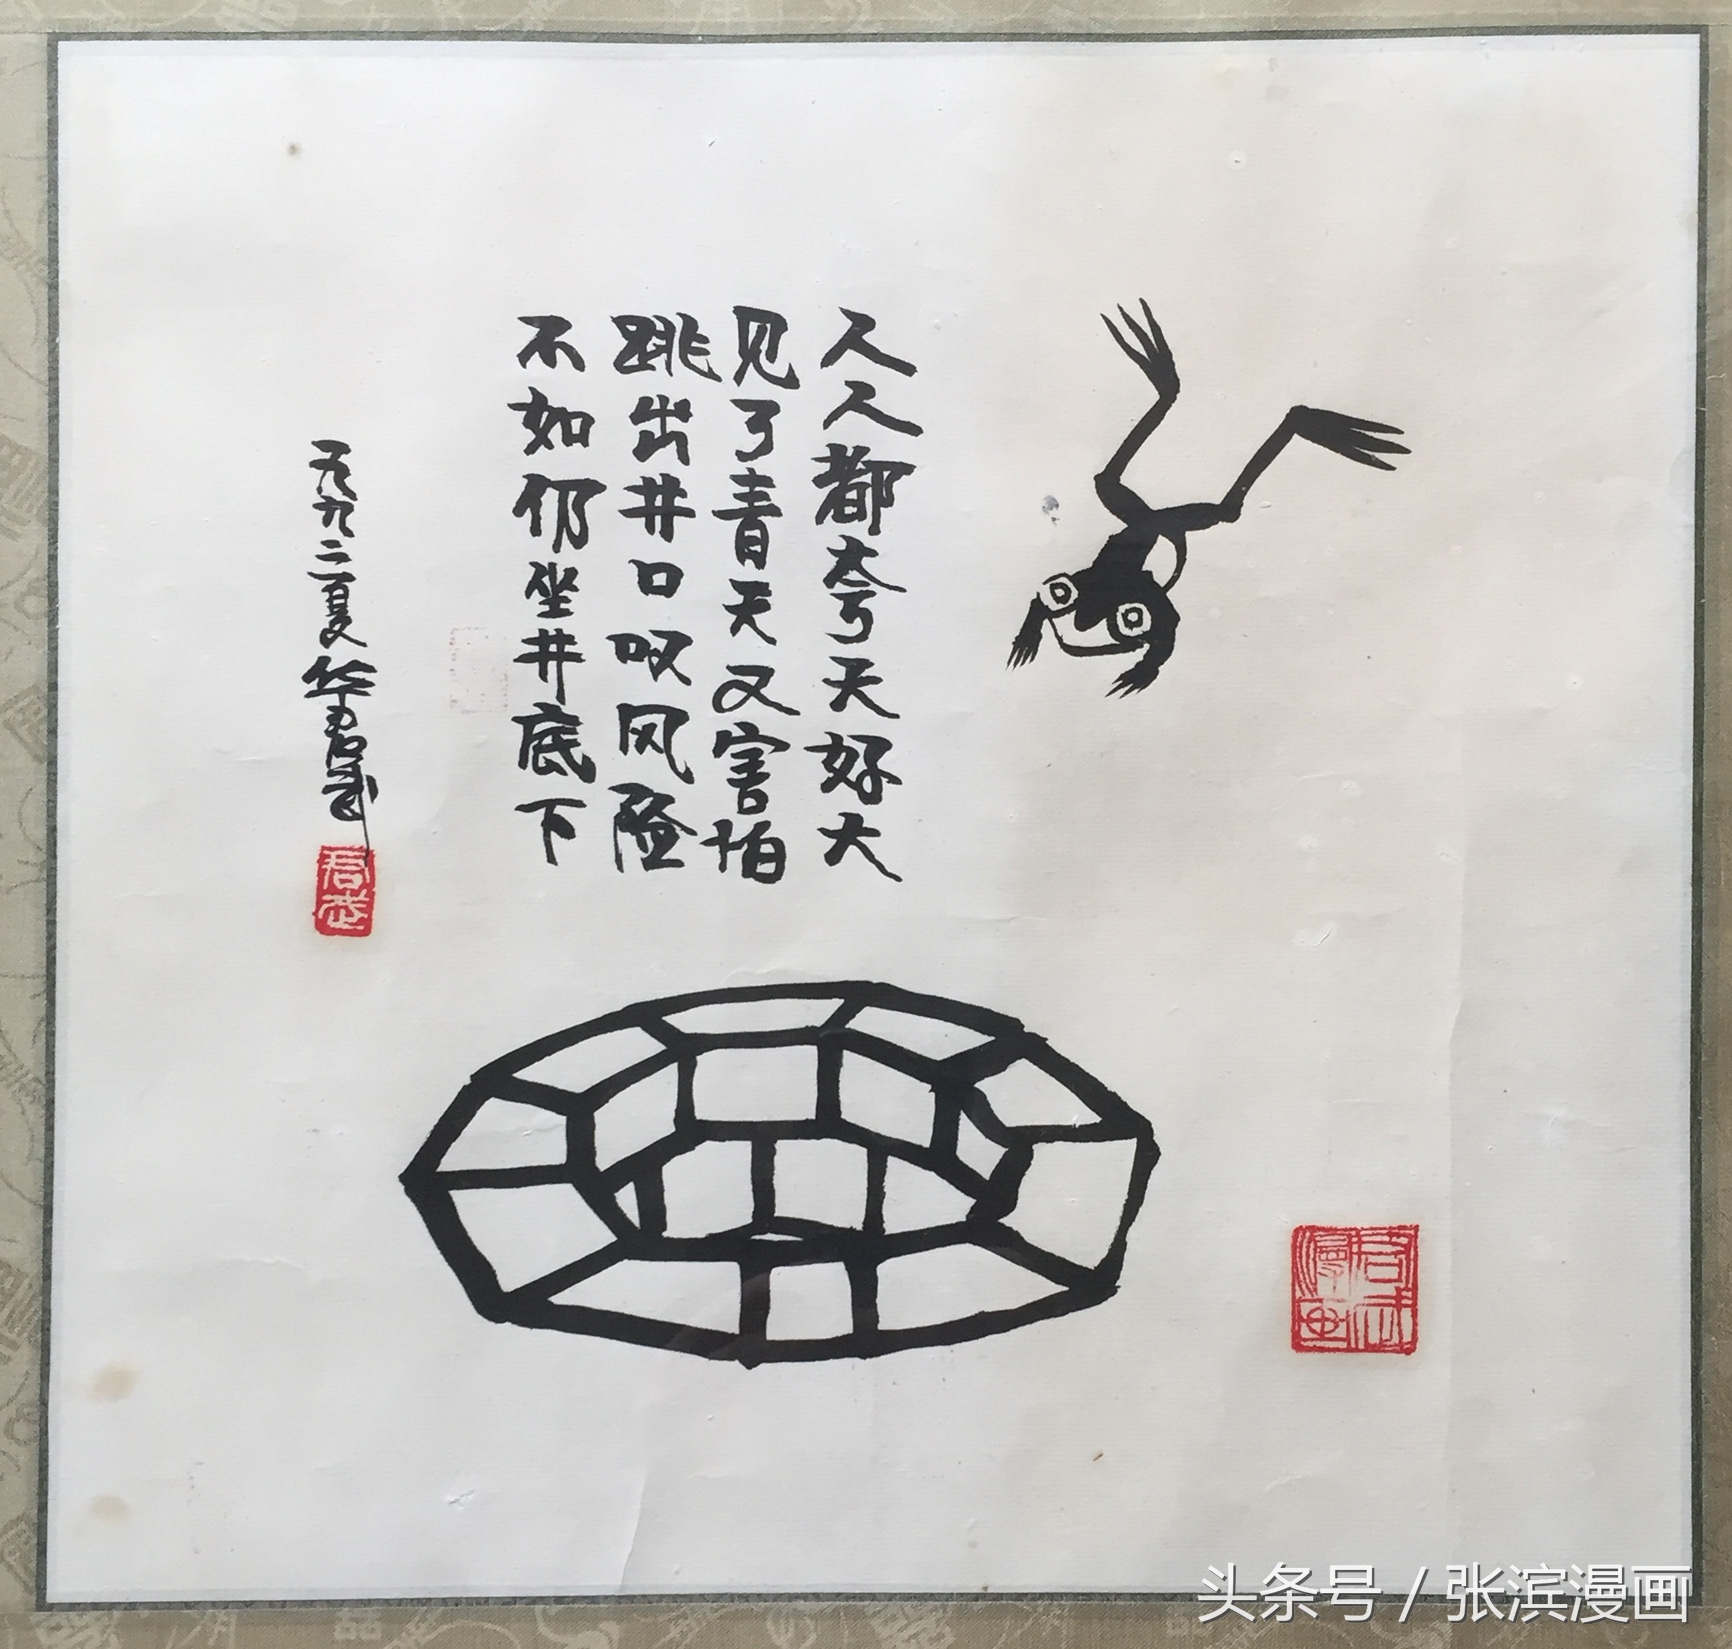 人人都夸天好大
见了青天又害怕
跳出井口叹风险
不如仍坐井底下
一九九二夏华君武
君武
君武漫画
头条号 / 张滨漫画